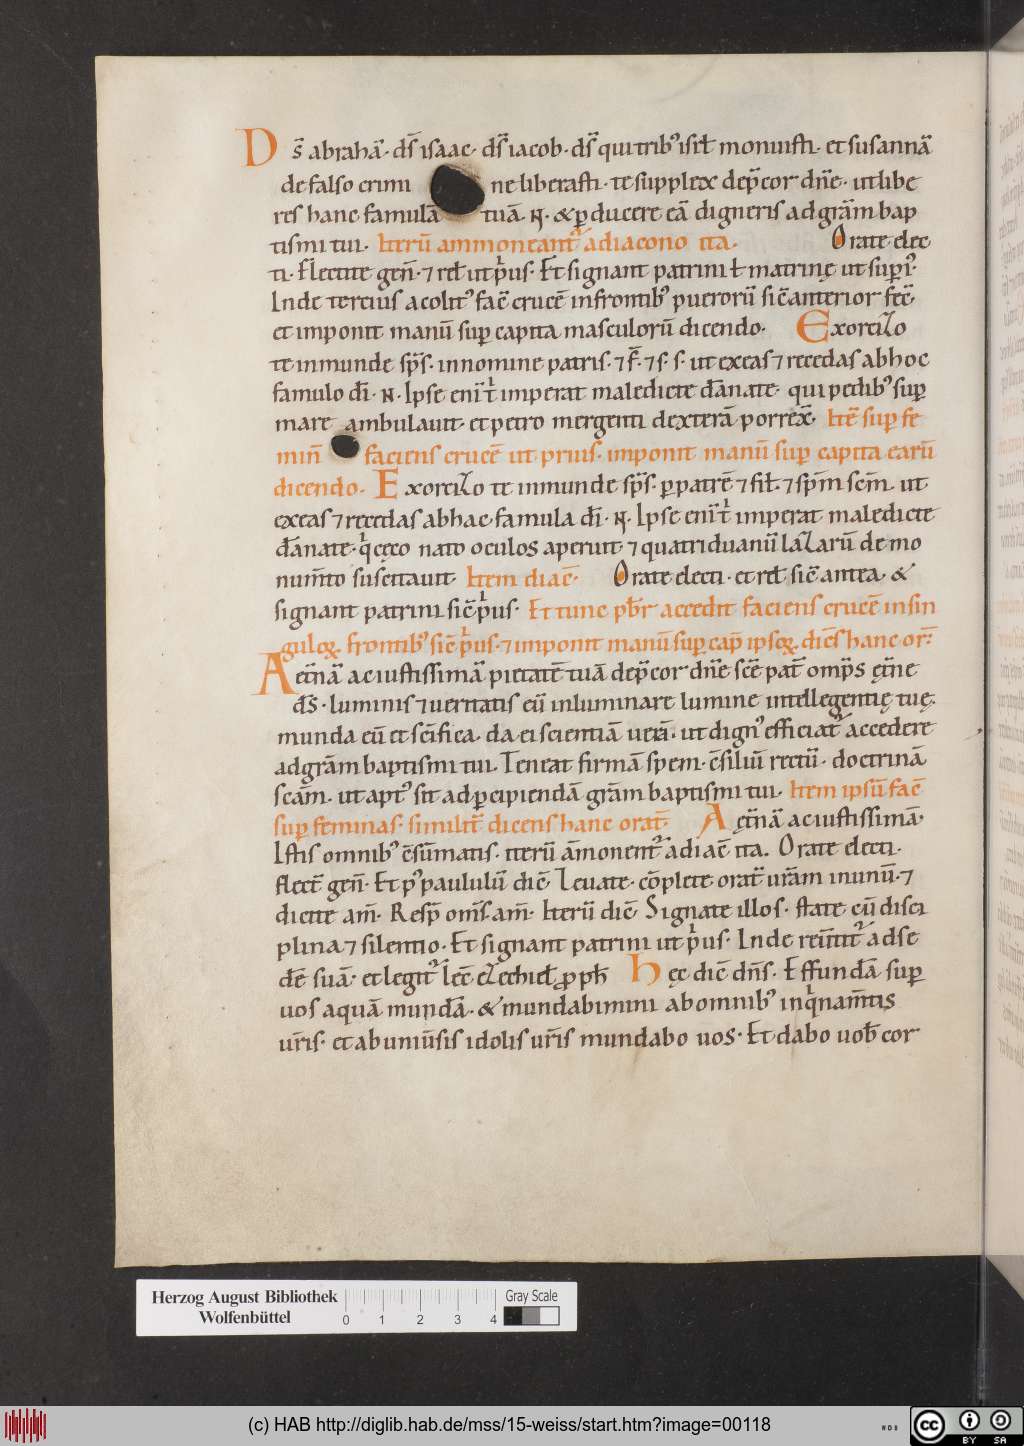 D s̄ abrahā· ds̄ isaac· ds̄ iacob· ds̄ qui tribꝰ isrł monuisti· et susannā
de falso crimi ne liberasti· te supplex dep̄cor dn̄e· ut libe
res hanc famulā tuā ·N· & ꝑducere eā digneris ad grām bap
tismi tui· Iterū ammoneantᷣ a diacono ita· Orate elec
ti· flectite geñ· ⁊ reł ut prius· Et signant patrini ł matrinę ut supᷣ·
Inde tercius acolitꝰ facͫ crucē in frontibꝰ puerorū sic̄ anterior fec̄·
et imponit manū sup capita masculorū dicendo· Exorcizo
te inmunde sp̄s· in nomine patris· ⁊ f̄· ⁊ s· s· ut exeas ⁊ recedas ab hoc
famulo dī· N· Ipse enī t̉ imperat maledicte dānate· qui pedibꝰ sup
mare ambulauit· et petro mergenti dexterā porrex̄· Itē sup fe
min̄ faciens crucē ut prius· imponit manū sup capita earū
dicendo· Exorcizo te inmunde sp̄s· ꝑ patrē ⁊ fił· ⁊ sp̄m scm̄· ut
exeas ⁊ recedas ab hac famula dī· N· Ipse enī t̉ imperat maledicte
dānate· q̉ cęco nato oculos aperuit ⁊ quatriduanū lazarū de mo
num̄to suscitauit· Item diac̄· Orate electi· et reł sic̄ antea· &
signant patrini sic̄ prius· Et tunc pbr̄ accedit faciens crucē in sin
guloꝝ frontibꝰ sic̄ prius· ⁊ imponit manū sup cap̄ ipsoꝝ dicēs hanc or̄:
Aet̄nā ac iustissimā pietatē tuā dep̄cor dn̄e sc̄e pat̄ omp̄s ęt̄ne
ds̄· luminis ⁊ ueritatis· eū inluminare lumine intellegentię tuę·
munda eū et sc̄ifica· da ei scientiā uerā· ut dignꝰ efficiatᷣ accedere
ad grām baptismi tui· Teneat firmā spem· c̄siliū rectū· doctrinā
scām· ut aptꝰ sit ad ꝑcipiendā grām baptismi tui· Item ipsū fac̄
sup feminas· similit̄ dicens hanc orat̄· Aęt̄nā ac iustissimā·
Istis omnibꝰ c̄sūmatis· iterū āmonentᷣ a diac̄ ita. Orate electi·
flect̄ geñ· Et pꝰ paululū dic̄· Leuate· cōplete orat̄ urām in unū· ⁊
dicite am̄· Resp̄ oms̄ am̄· Iterū dic̄· Signate illos· state cū disci
plina ⁊ silentio· Et signant patrini ut prius· Inde reūtitᷣ ad se
dē suā· et legitᷣ lec̄ ezechieł ꝓph̄ Hęc dic̄ dn̄s· Effundā sup
uos aquā mundā· & mundabimini ab omnibꝰ inq̉nam̄tis
ur̄is· et ab uniūsis idolis ur̄is mundabo uos· Et dabo uob̄ cor
Herzog August Bibliothek
Wolfenbüttel
0 1 2 3 4
Gray Scale
(c) HAB http://diglib.hab.de/mss/15-weiss/start.htm?image=00118
WDB
cc BY SA